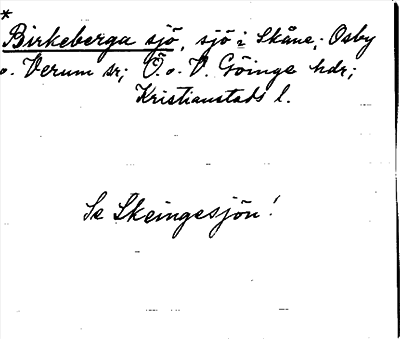 *
Birkeberga sjö, sjö i Skåne; Osby
o. Verum sr; Ö. o. V. Göinge hdr;
Kristianstads l.
Se Skeingesjön!